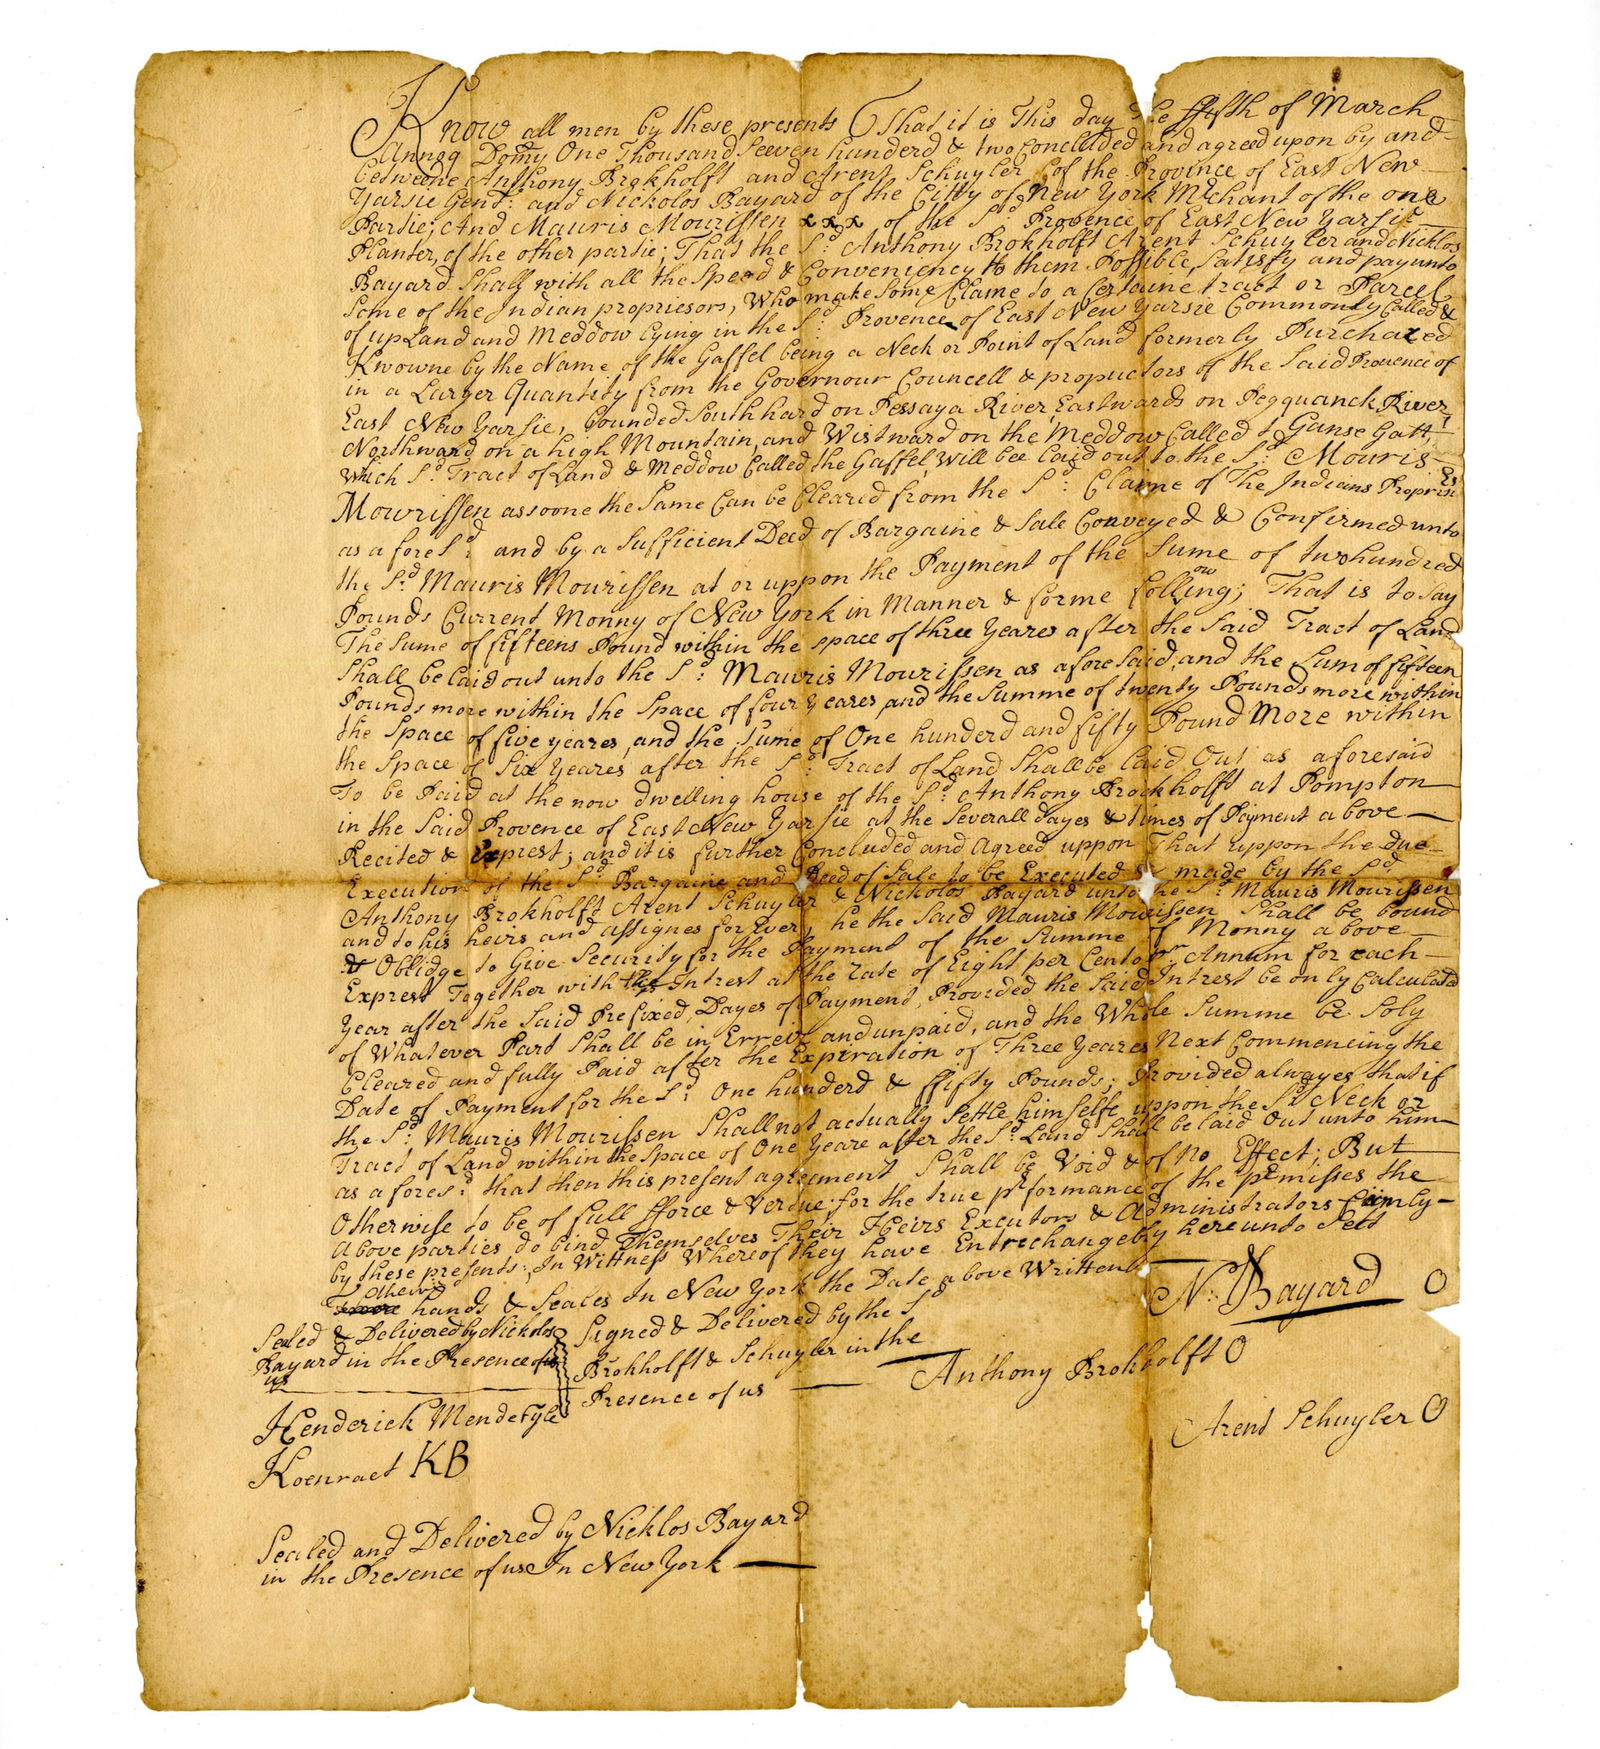 Know all men by these presents That it is This day the ffifth of March
Annoq Domy One Thousand Seeven hunderd & two Concluded and agreed upon by and
betweene Anthony Brokholft and Arent Schuyler of the Province of East New
Yarsie Gent: and Nickolos Bayard of the Citty of New York Mchant of the one
Partie; And Mauris Mourissen x x x of the Sd Provence of East New Yarsie
Planter, of the other partie; That the Sd: Anthony Brokholft Arent Schuyler and Nicklos
Bayard Shall with all the Speed & Conveniency to them Possible, Satisfy and pay unto
Some of the Indian propriesors, Who make Some Clame to a Certaine tract or Parcel
of upLand and Meddow Lying in the Sd: Provence of East New Yarsie Commonly Called &
Knowne by the Name of the Gaffel being a Neck or Point of Land formerly Purchaced
in a Larger Quantity from the Governour Councell & propuctors of the Said Provence of
East New Yarsie, bounded Southhard on Pessaya River, Eastwards on Pegquanck River,
Northward on a high Mountain, and Wistward on the Meddow Called t Ganse Gatt,
Which Sd: Tract of Land & Meddow Called the Gaffel, Will bee laid out to the Sd: Mouris
Mourissen assoone the Same Can be Cleared from the Sd: Clame of The Indians Proprin Es
as afore Sd: and by a Sufficient Deed of Bargaine & Sale Conveyed & Confirmed unto
the Sd: Mauris Mourissen at or uppon the Payment of the Sume of two hundred
Pounds Current Monny of New York in Manner & forme follow ing; That is to Say
The Sume of fifteens Pound within the space of three Yeares after the Said Tract of Land
Shall be laid out unto the Sd: Mauris Mourissen as afore Said, and the Sum of fifteen
Pounds more within the Space of four Yeares, and the Summe of twenty Pounds more within
the Space of five yeares, and the Sume of One hunderd and fifty Pound More within
the Space of Six Yeares after the Sd: Tract of Land Shall be laid Out as aforesaid
To be Paid at the now dwelling house of the Sd: Anthony Brockholft at Pompton
in the Said Provence of East New Yarsie at the Severall dayes & times of Payment above
Recited & Exprest; and it is further Concluded and Agreed uppon That uppon the due
Execution of the Sd Bargaine and Deed of Sale to be Executed & made by the Sd
Anthony Brokholft Arent Schuyler & Nickolos Bayard unto the Sd: Mauris Mourissen
and to his heirs and assignes for Ever, he the Said Mauris Mourissen Shall be bound
& Oblidge to Give Security for the Payment of the Summe of Monny above
Exprest Together with the Intrest at the Rate of Eight per Cento pr Annum for each
Year after the Said Prefixed, Dayes of Payment, Provided the Said Intrest be only Calculated
of Whatever Part Shall be in Erreir and unpaid, and the Whole Summe be Soly
Cleared and fully Paid after the Expiration of Three Yeares Next Commencing the
Date of Payment for the Sd: One hunderd & ffifty Pounds; Provided alwayes that if
the Sd: Mauris Mourissen Shall not actually Settle himselfe uppon the Sd Neck or
Tract of Land within the Space of One Yeare after the Sd: Land Shall be laid Out unto him
as afores:d that then this present agreement Shall be Void & of no Effect; But
Otherwise to be of full fforce & Vertue for the true pr formance of the premisses the
Above parties do bind Themselves Their Heirs Executors & Administrators firmly
by these presents; In Wittness Whereof they have Entrechangebly hereunto Sett
their hands & Seales In New York the Date above Written
N: Bayard O
Sealed & Delivered by Nickolos
Bayard in the Presence of us
us
Signed & Delivered by the Sd
Brokholft & Schuyler in the
Presence of us
Anthony Brokholft O
Arent Schuyler O
Henderick Mendefyle
Koenraet KB
Sealed and Delivered by Nicklos Bayard
in the Presence of us In New York